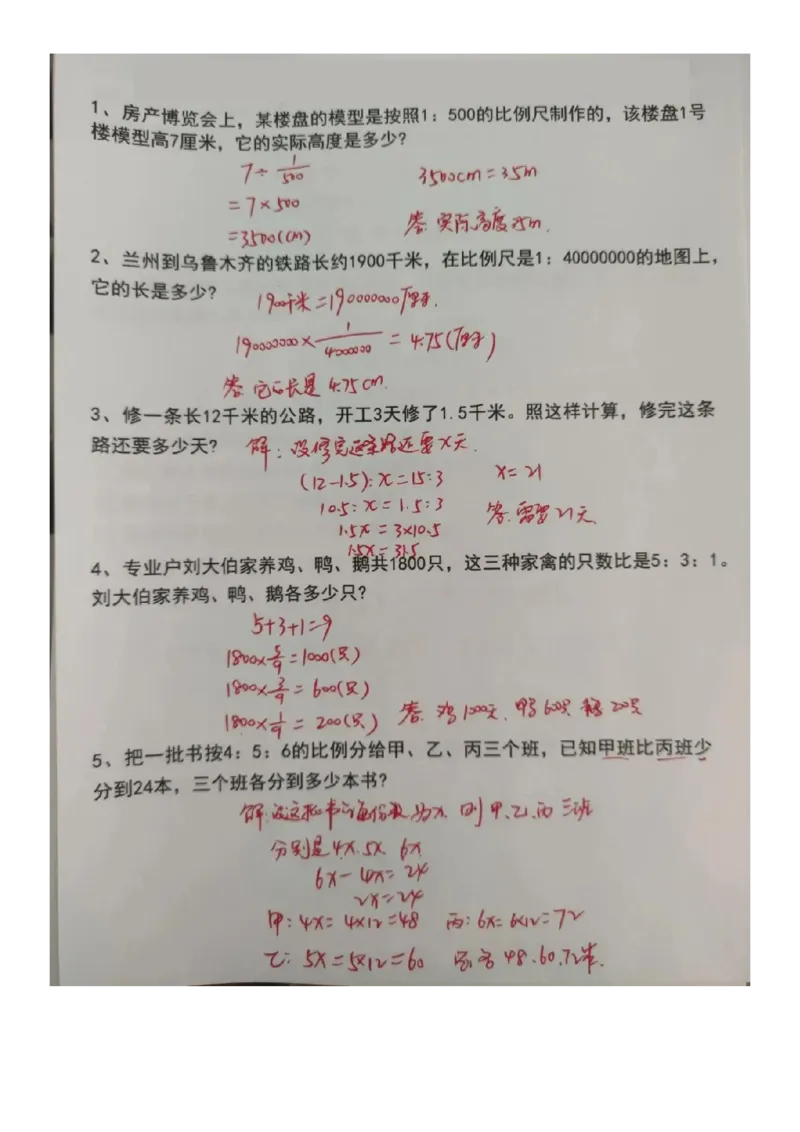 1、房产博览会上，某楼盘的模型是按照1：500的比例尺制作的，该楼盘1号
楼模型高7厘米，它的实际高度是多少？
7÷1/500
3500cm=35m
=7×500
=3500(cm)
答:实际高度35m.
2、兰州到乌鲁木齐的铁路长约1900千米，在比例尺是1：40000000的地图上，
它的长是多少？
1900千米=190000000厘米.
190000000×1/40000000=4.75(厘米)
答:它的长是4.75cm.
3、修一条长12千米的公路，开工3天修了1.5千米。照这样计算，修完这条
路还要多少天？
解：设修完这条路还要x天.
(12-1.5):x=1.5:3
x=21
10.5:x=1.5:3
答:需要21天
1.5x=3×10.5
1.5x=31.5
4、专业户刘大伯家养鸡、鸭、鹅共1800只，这三种家禽的只数比是5：3：1。
刘大伯家养鸡、鸭、鹅各多少只？
5+3+1=9
1800×5/9=1000(只)
1800×3/9=600(只)
1800×1/9=200(只)
答.鸡1000只.鸭600只
5、把一批书按4：5：6的比例分给甲、乙、丙三个班，已知甲班比丙班少
分到24本，三个班各分到多少本书？
解:设这批书的每份数为x.则甲、乙、丙三班
分别是4x.5x.6x
6x-4x=24
2x=24
甲:4x=4×12=48
丙:6x=6×12=72
乙:5x=5×12=60
48.60.72本.